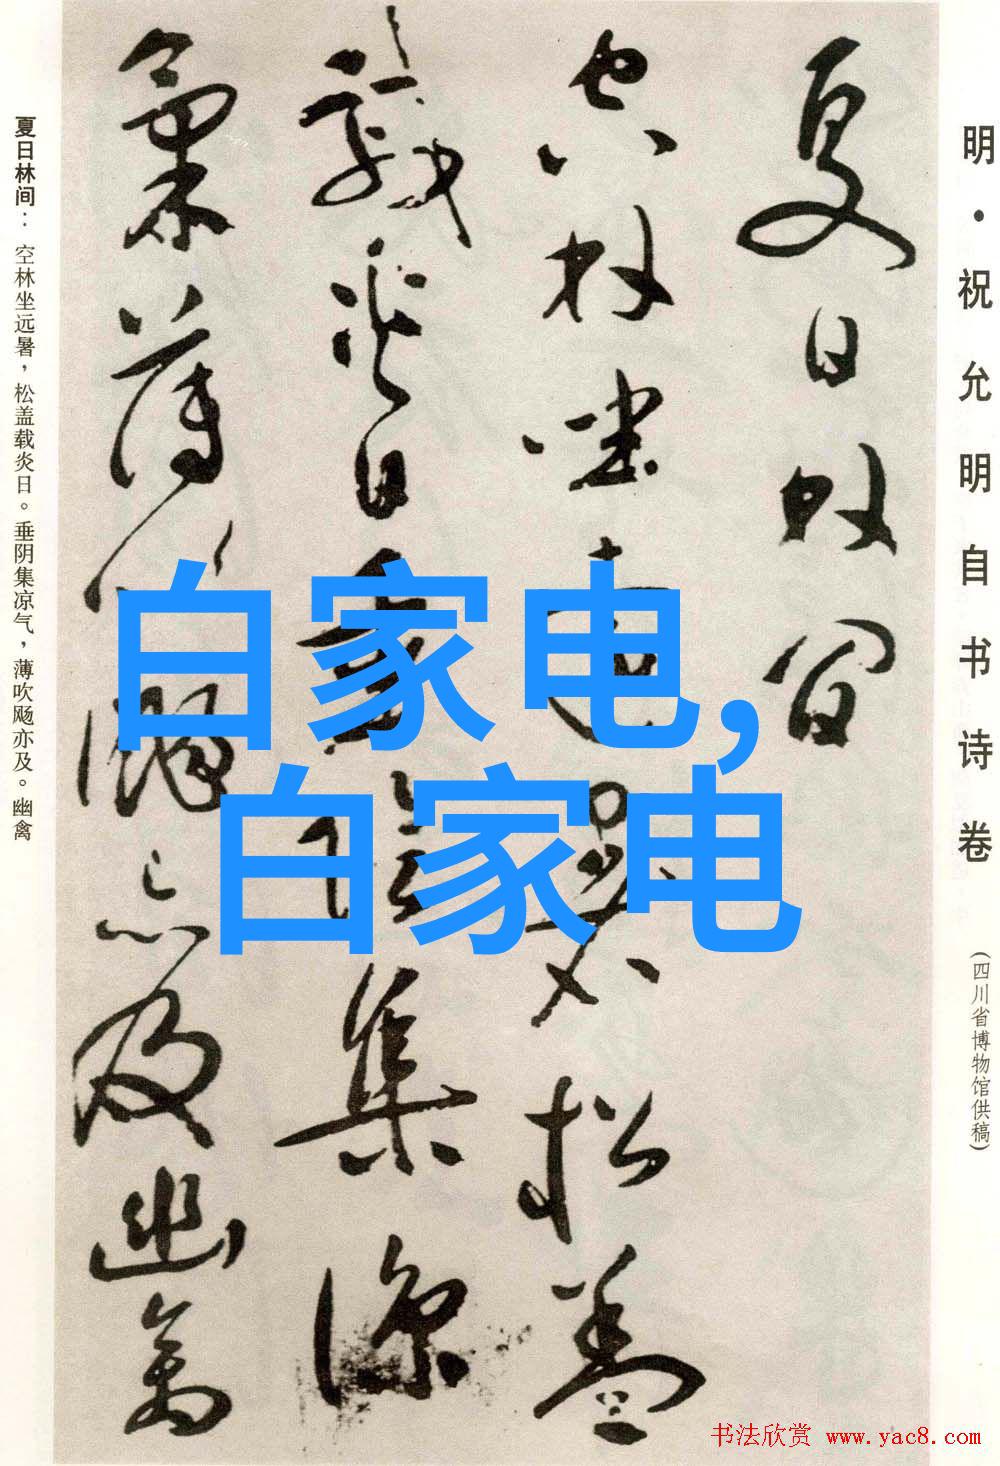 明·祝允明自书诗卷
(四川省博物馆供稿)
夏日林间
空林坐远暑松盖
载炎日垂阴集凉
气薄吹飏亦及幽禽
夏日林间：空林坐远暑，松盖载炎日。垂阴集凉气，薄吹飏亦及。幽禽
白家电,
白家电
书法欣赏 www.yac8.com